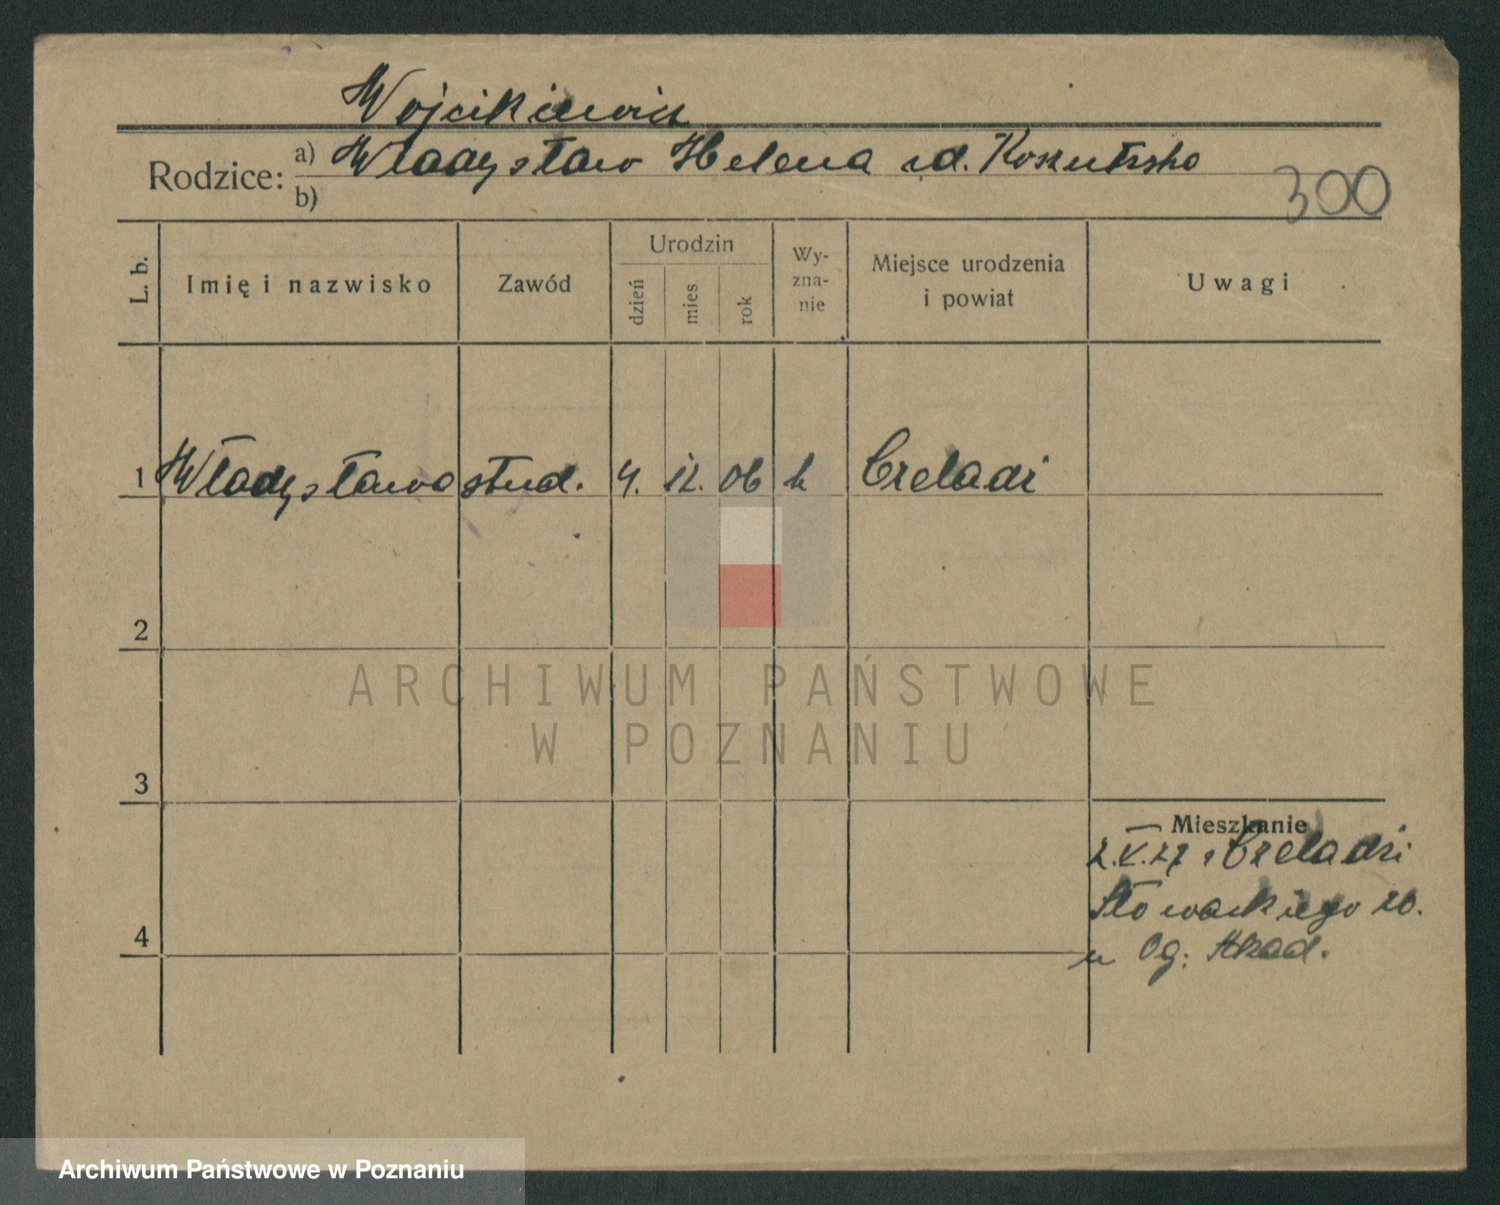 Wojcikiewicz
Rodzice: a) Władysław Helena
b)
300
L. b.
Imię i nazwisko
Zawód
Urodzin
dzień
mies
rok
Wy-
zna-
nie
Miejsce urodzenia
i powiat
Uwagi
1 Władysława stud. 4. 12. 06 k Czeladź
2
3
4
Mieszkanie
2.V.27 Czeladzi
Słowackiego 20.
Akad.
ARCHIWUM PAŃSTWOWE
W POZNANIU
Archiwum Państwowe w Poznaniu